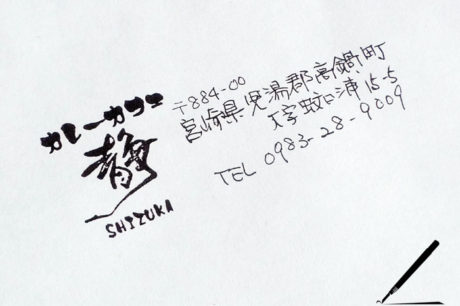 カレーカフェ
静
SHIZUKA
〒884-00
宮崎県児湯郡高鍋町
大字蚊口浦15-5
TEL 0983-28-9009